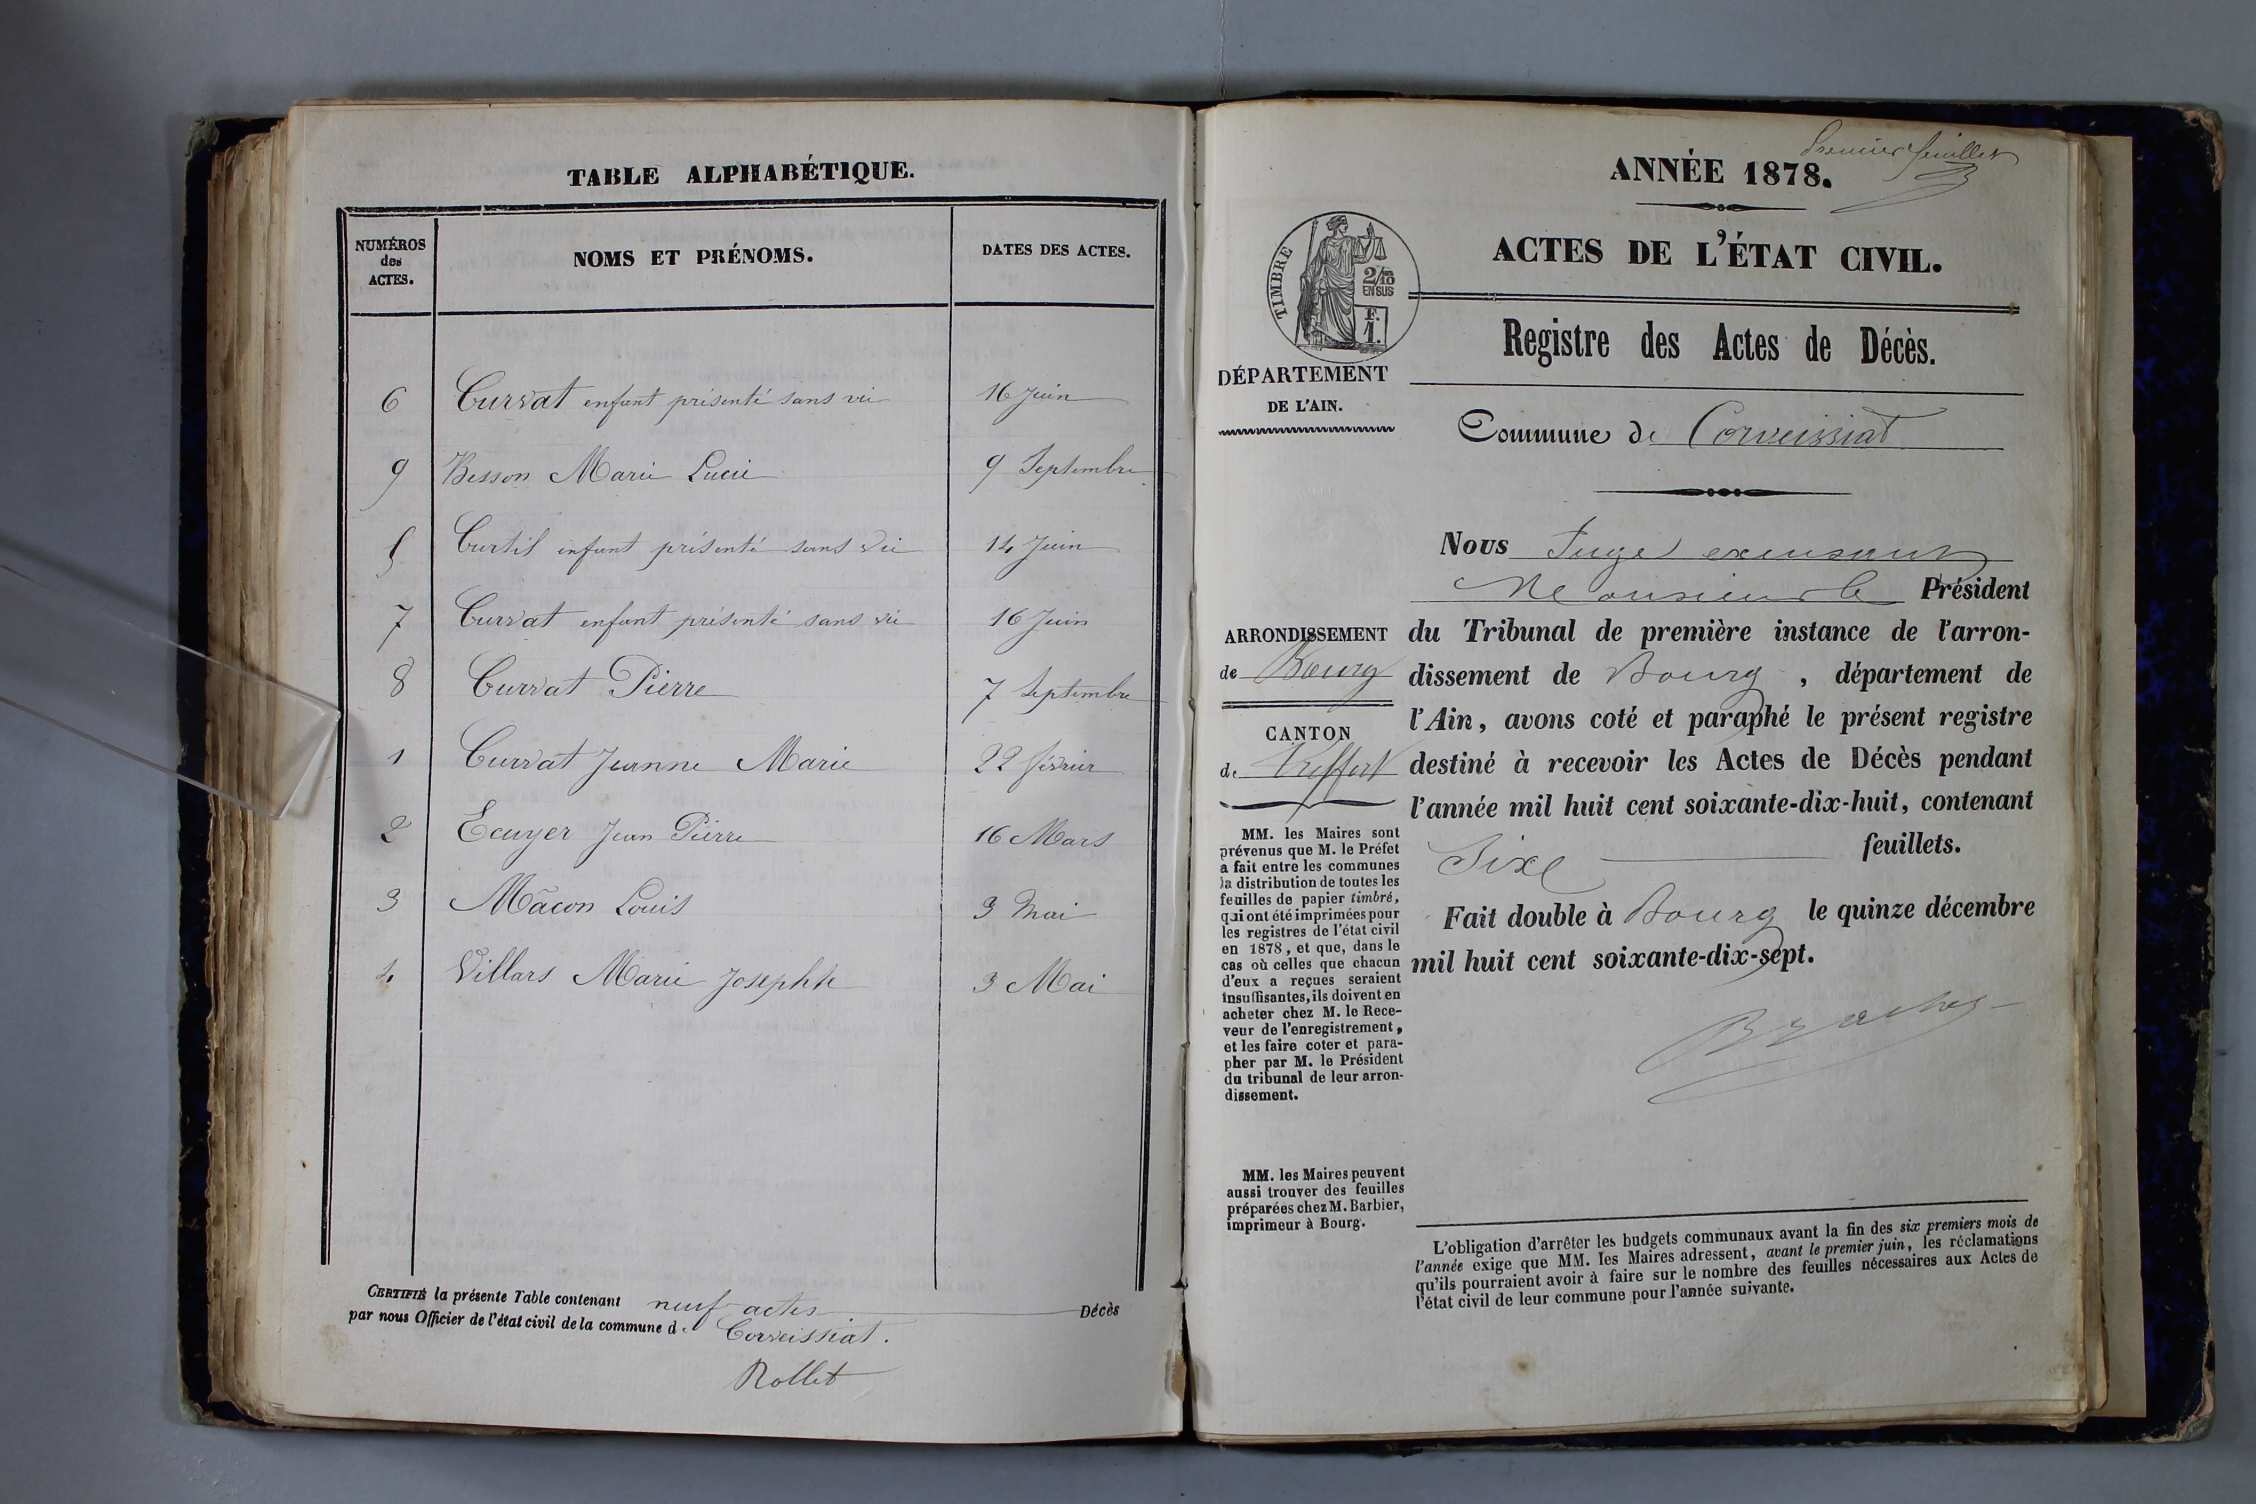 TABLE ALPHABÉTIQUE.
NUMÉROS
des
ACTES.
NOMS ET PRÉNOMS.
DATES DES ACTES.
6 Curvat enfant présenté sans vie 16 Juin
9 Besson Marie Lucie 9 Septembre
5 Curtil enfant présenté sans vie 14 Juin
7 Curvat enfant présenté sans vie 16 Juin
8 Curvat Pierre 7 Septembre
1 Curvat Jeanne Marie 22 février
2 Ecuyer Jean Pierre 16 Mars
3 Mâcon Louis 3 Mai
4 Villars Marie Josephte 3 Mai
CERTIFIÉ la présente Table contenant neuf actes Décès
par nous Officier de l'état civil de la commune de Corveissiat.
Rollet
Premier feuillet
ANNÉE 1878.
ACTES DE L'ÉTAT CIVIL.
TIMBRE
2/10
EN SUS
F.
1.
Registre des Actes de Décès.
DÉPARTEMENT
DE L'AIN.
Commune de Corveissiat
ARRONDISSEMENT
de Bourg
CANTON
de Treffort
MM. les Maires sont
prévenus que M. le Préfet
a fait entre les communes
la distribution de toutes les
feuilles de papier timbré,
qui ont été imprimées pour
les registres de l'état civil
en 1878, et que, dans le
cas où celles que chacun
d'eux a reçues seraient
insuffisantes, ils doivent en
acheter chez M. le Rece-
veur de l'enregistrement,
et les faire coter et para-
pher par M. le Président
du tribunal de leur arron-
dissement.
MM. les Maires peuvent
aussi trouver des feuilles
préparées chez M. Barbier,
imprimeur à Bourg.
Nous Juge
Monsieur le Président
du Tribunal de première instance de l'arron-
dissement de Bourg, département de
l'Ain, avons coté et paraphé le présent registre
destiné à recevoir les Actes de Décès pendant
l'année mil huit cent soixante-dix-huit, contenant
Sixe feuillets.
Fait double à Bourg le quinze décembre
mil huit cent soixante-dix-sept.
L'obligation d'arrêter les budgets communaux avant la fin des six premiers mois de
l'année exige que MM. les Maires adressent, avant le premier juin, les réclamations
qu'ils pourraient avoir à faire sur le nombre des feuilles nécessaires aux Actes de
l'état civil de leur commune pour l'année suivante.